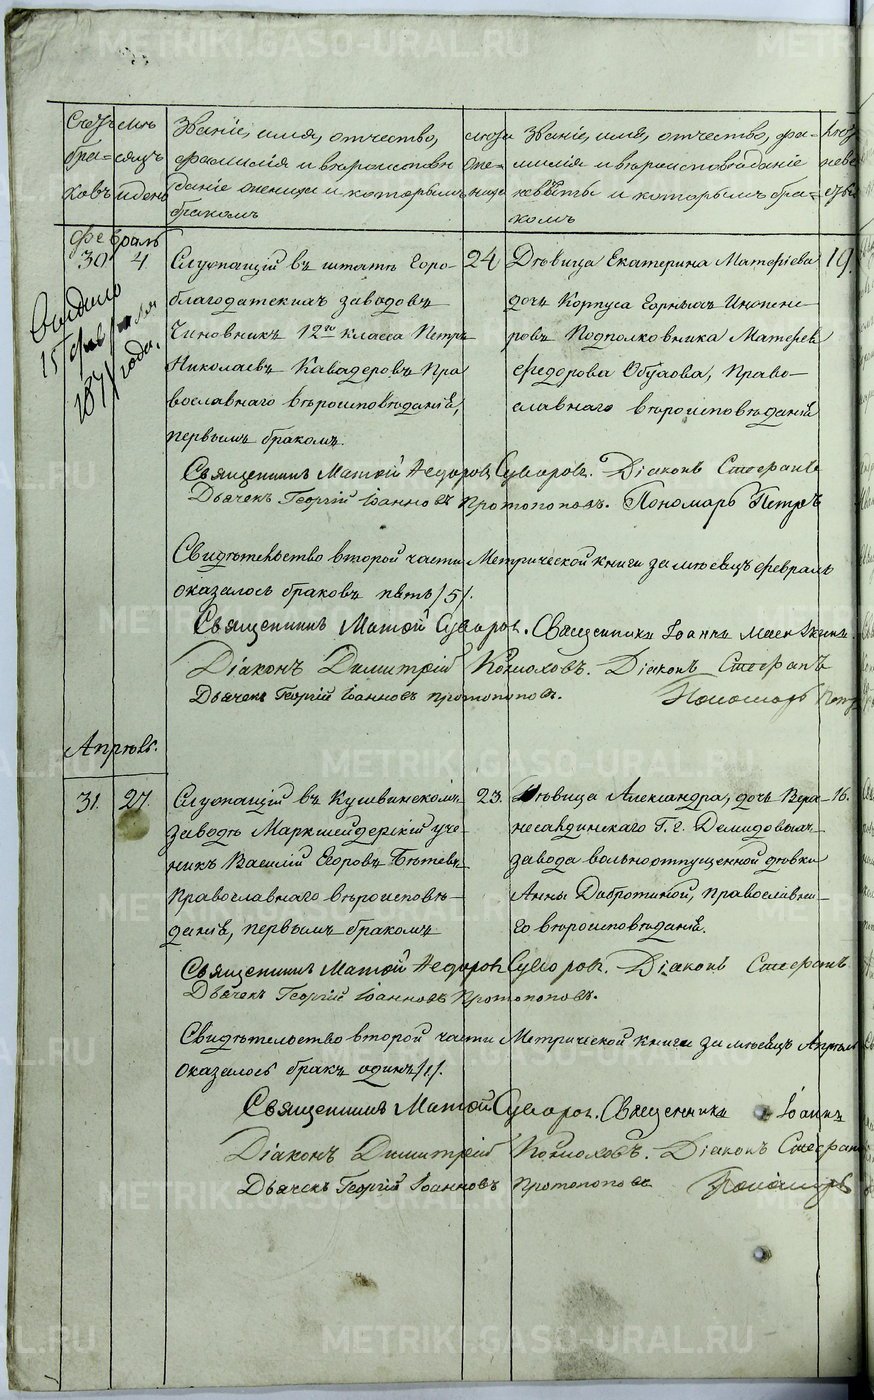 METRIKI.GASO-URAL.RU
Счетъ бра-ковъ
мѣсяцъ и день
Званіе, имя, отчество,
фамилія и вѣроисповѣ
даніе жениха и которымъ
бракомъ
лѣта же-ниха
Званіе, имя, отчество, фа-
милія и вѣроисповѣданіе
невѣсты и которымъ бра-
комъ
Февраль
30
4
Служащій въ штатѣ Горо-
благодатскихъ заводовъ
Чиновникъ 12го класса Петръ
Николаевъ Кавадеровъ Пра
вославнаго вѣроисповѣданія,
первымъ бракомъ.
24
Дѣвица Екатерина Матфіева
дочь Корпуса Горныхъ Инжене-
ровъ Подполковника Матфея
Федорова Обухова, Право-
славнаго вѣроисповѣданія
19.
Выдано
15 февраля
года.
Священникъ Матѳій Ѳедоровъ Суворовъ. Діаконъ Стефанъ
Дьячекъ Георгій Іоанновъ Протопоповъ. Пономарь Петръ
Свидѣтельство второй части Метрической книги за мѣсяцъ февраль
оказалось браковъ пять /5/.
Священникъ Матѳій Суворовъ. Священникъ Іоаннъ
Діаконъ Димитрій Діаконъ Стефанъ
Дьячекъ Георгій Іоанновъ Протопоповъ. Пономарь Петръ
Апрѣль.
31.
27.
Служащій въ Кушвинскомъ
заводѣ Маркшейдерскій уче
никъ Василій Егоровъ
Православнаго вѣроисповѣ-
данія, первымъ бракомъ
23.
Дѣвица Александра, дочь Верх-
несалдинскаго Г.г. Демидовыхъ
завода вольноотпущенной дѣвки
Анны Добротиной, православна-
го вѣроисповѣданія.
16.
Священникъ Матѳій Ѳедоровъ Суворовъ. Діаконъ Стефанъ
Дьячекъ Георгій Іоанновъ Протопоповъ.
Свидѣтельство второй части Метрической книги за мѣсяцъ Апрѣль
оказалось бракъ одинъ /1/.
Священникъ Матѳій Суворовъ. Священникъ Іоаннъ
Діаконъ Димитрій Діаконъ Стефанъ
Дьячекъ Георгій Іоанновъ Протопоповъ Пономарь
METRIKI.GASO-URAL.RU